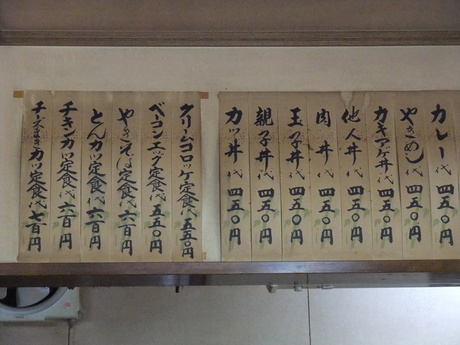 カレー代 四五〇円
やきめし代 四五〇円
カキアゲ丼代 四五〇円
他人丼代 四五〇円
肉丼代 四五〇円
玉子丼代 四五〇円
親子丼代 四五〇円
カツ丼代 四五〇円
クリームコロッケ定食代 五五〇円
ベーコンエッグ定食代 五五〇円
やきそば定食代 六百円
とんカツ定食代 六百円
チキンカツ定食代 六百円
チーズまきカツ定食代 七百円